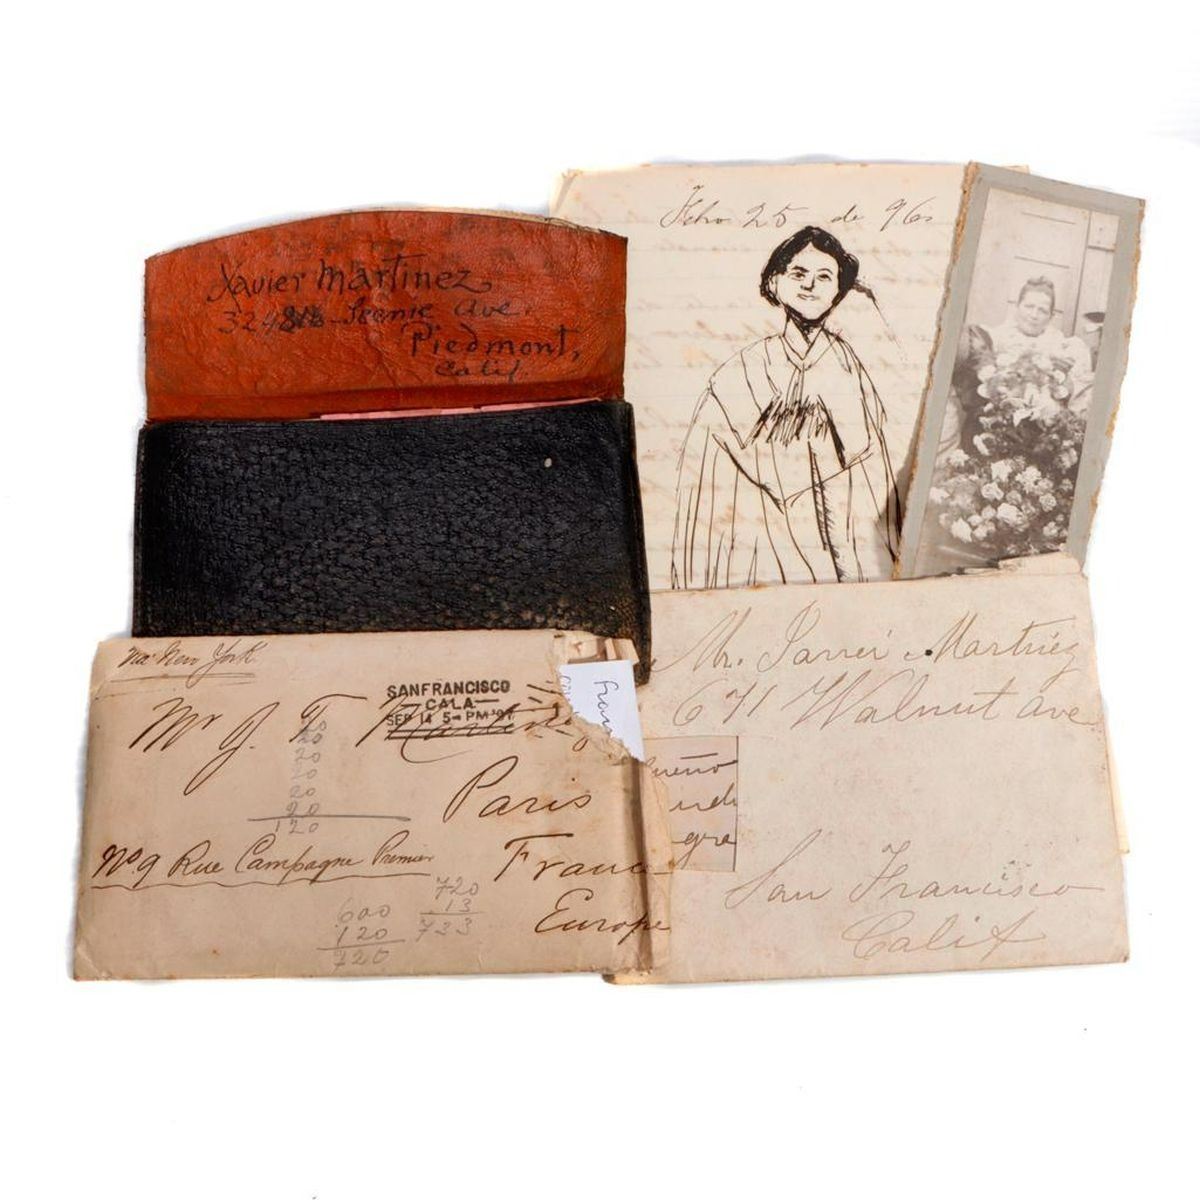 Xavier Martinez
Scenic Ave.
Piedmont,
Calif
Febro 25 de 96
via New York
SANFRANCISCO
CALA
SEP 14 5-PM '97
Mr J. T. Martinez
20
20
20
20
20
20
120
Paris
No. 9 Rue Campagne Premier
France
Europe
600
120
720
720
13
733
Mr. Javier Martinez
671 Walnut ave
San Francisco
Calif